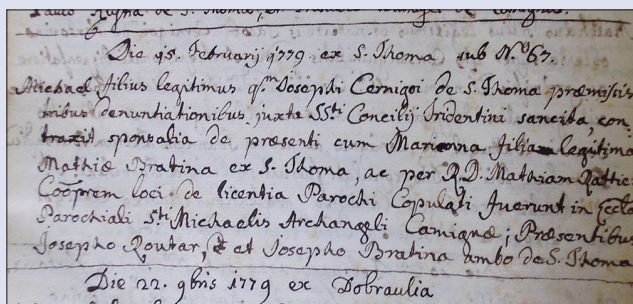 Die 15. Februarij 1779 ex S. Thoma sub N.º 67.
Michael filius legitimus q.m Josephi Cernigoi de S. Thoma præmissis
tribus denuntiationibus juxta SS.ti Concilij Tridentini sancita, con
traxit sponsalia de præsenti cum Marianna filia legitima
Mathiæ Bratina ex S. Thoma, ac per R.D. Mathiam
Cooprem loci de licentia Parochi Copulati fuerunt in Eccla
Parochiali S.ti Michaelis Archangeli Camignæ; Præsentibus
Josepho Routar, et Josepho Bratina ambo de S. Thoma
Die 22. 9bris 1779 ex Dobraulia